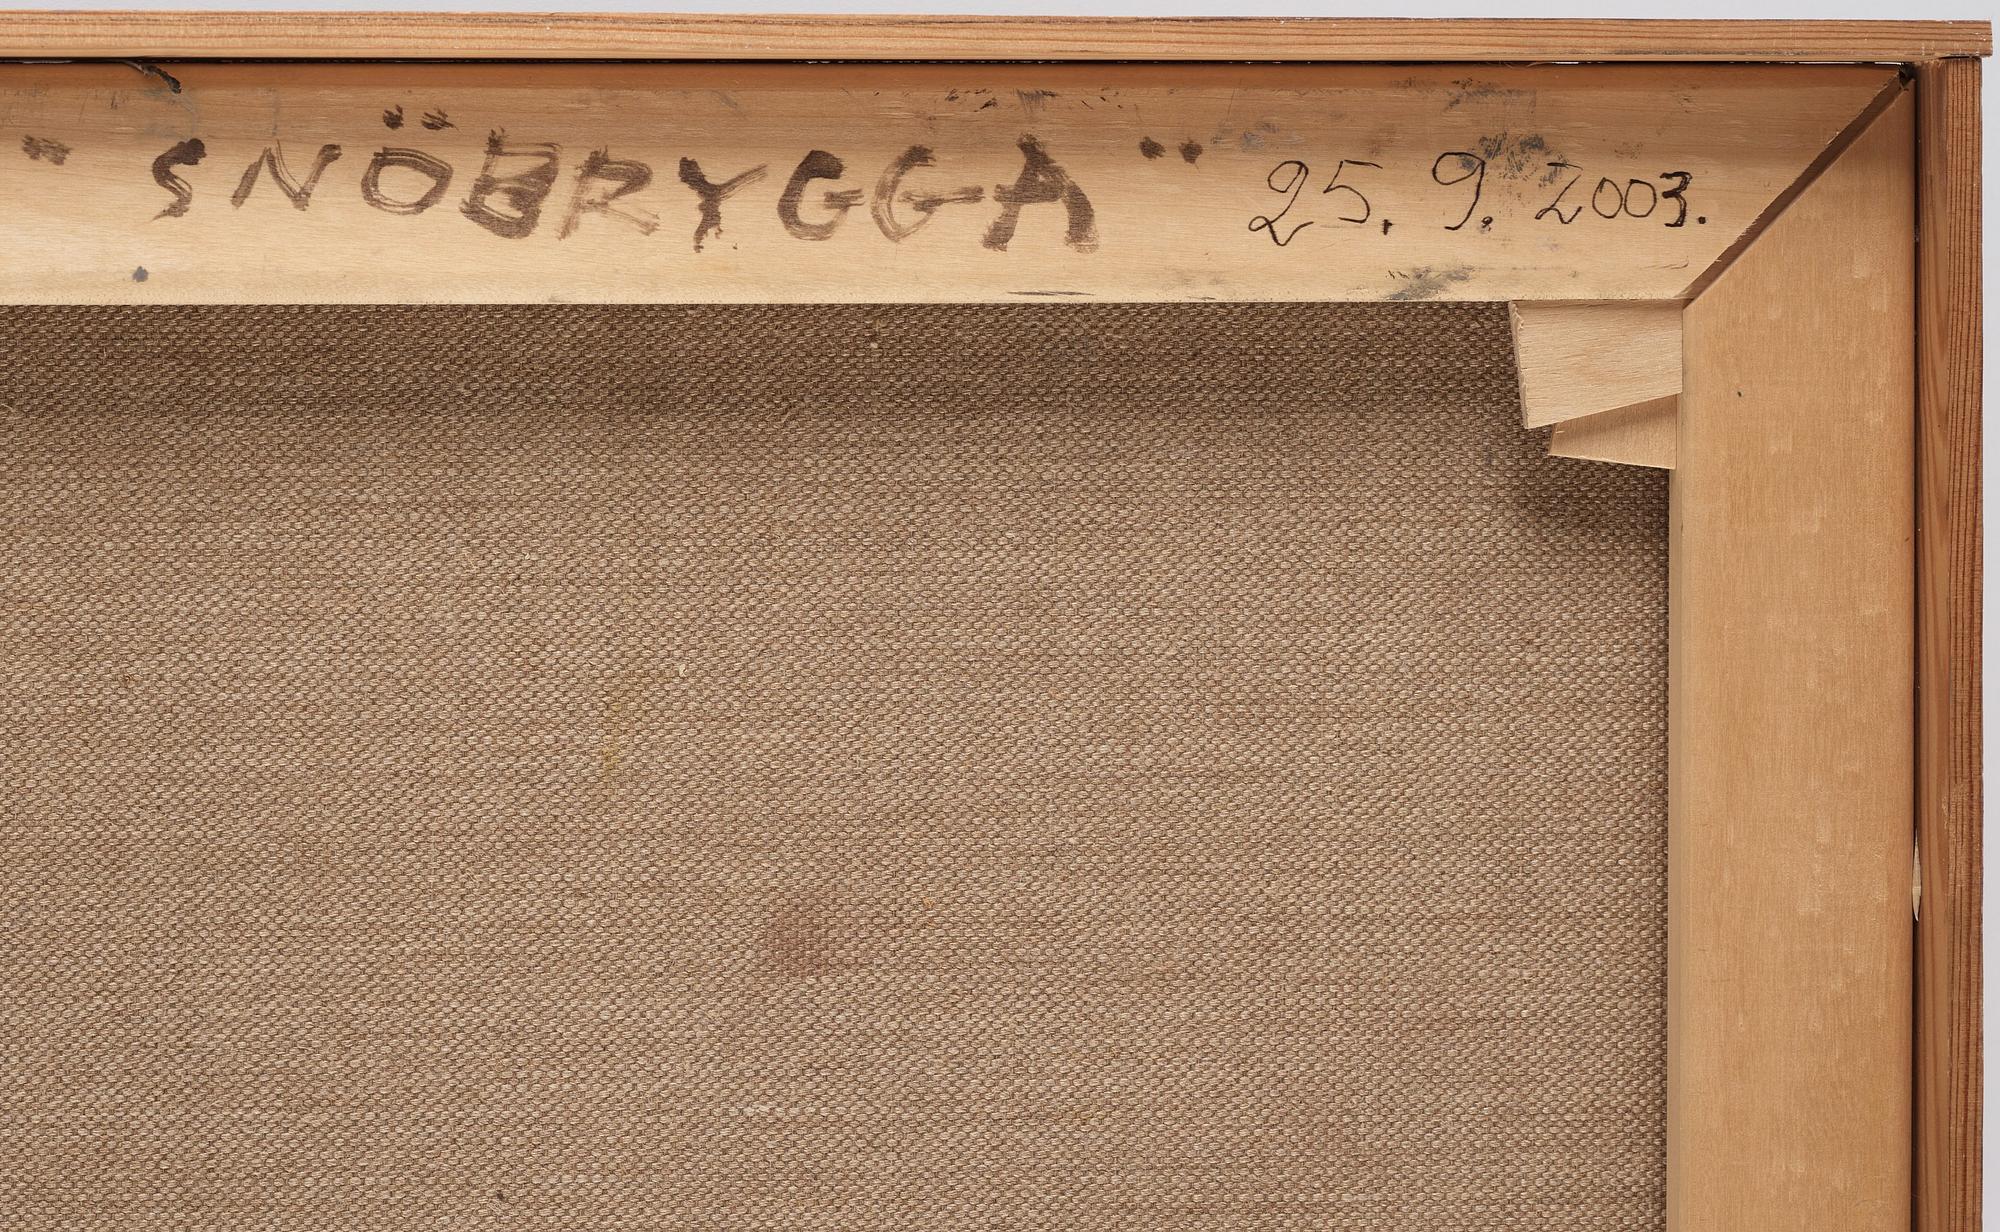 " SNÖBRYGGA " 25. 9. 2003.